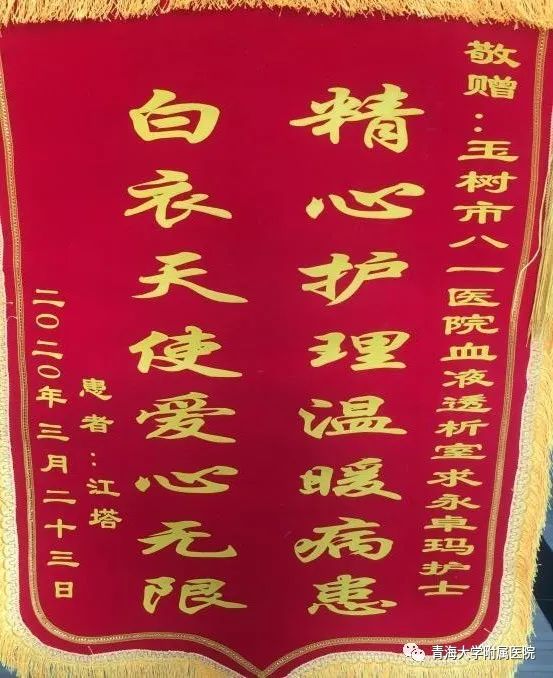 敬赠：玉树市八一医院血液透析室求永卓玛护士
精心护理温暖病患
白衣天使爱心无限
患者：江塔
二〇二〇年三月二十三日
青海大学附属医院